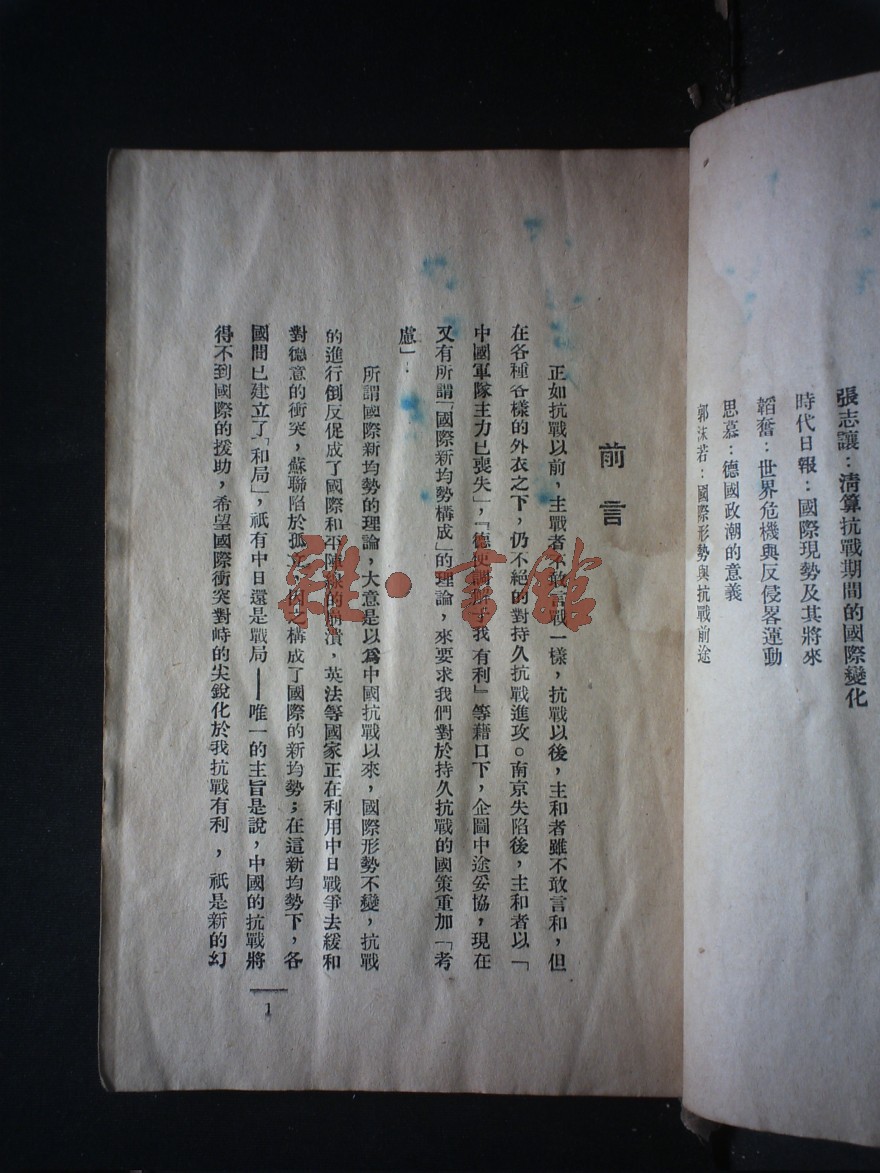 張志讓：清算抗戰期間的國際變化
時代日報：國際現勢及其將來
韜奮：世界危機與反侵畧運動
思慕：德國政潮的意義
郭沫若：國際形勢與抗戰前途
前言
正如抗戰以前，主戰者不敢言戰一樣，抗戰以後，主和者雖不敢言和，但
在各種各樣的外衣之下，仍不絕的對持久抗戰進攻。南京失陷後，主和者以「
中國軍隊主力已喪失」，「德使調解于我有利」等藉口下，企圖中途妥協，現在
又有所謂「國際新均勢構成」的理論，來要求我們對於持久抗戰的國策重加「考
慮」：
所謂國際新均勢的理論，大意是以爲中國抗戰以來，國際形勢不變，抗戰
的進行倒反促成了國際和平陣線的崩潰，英法等國家正在利用中日戰爭去緩和
對德意的衝突，蘇聯陷於孤立，因之構成了國際的新均勢；在這新均勢下，各
國間已建立了「和局」，祇有中日還是戰局——唯一的主旨是說，中國的抗戰將
得不到國際的援助，希望國際衝突對峙的尖銳化於我抗戰有利，祇是新的幻
1
雜·書館